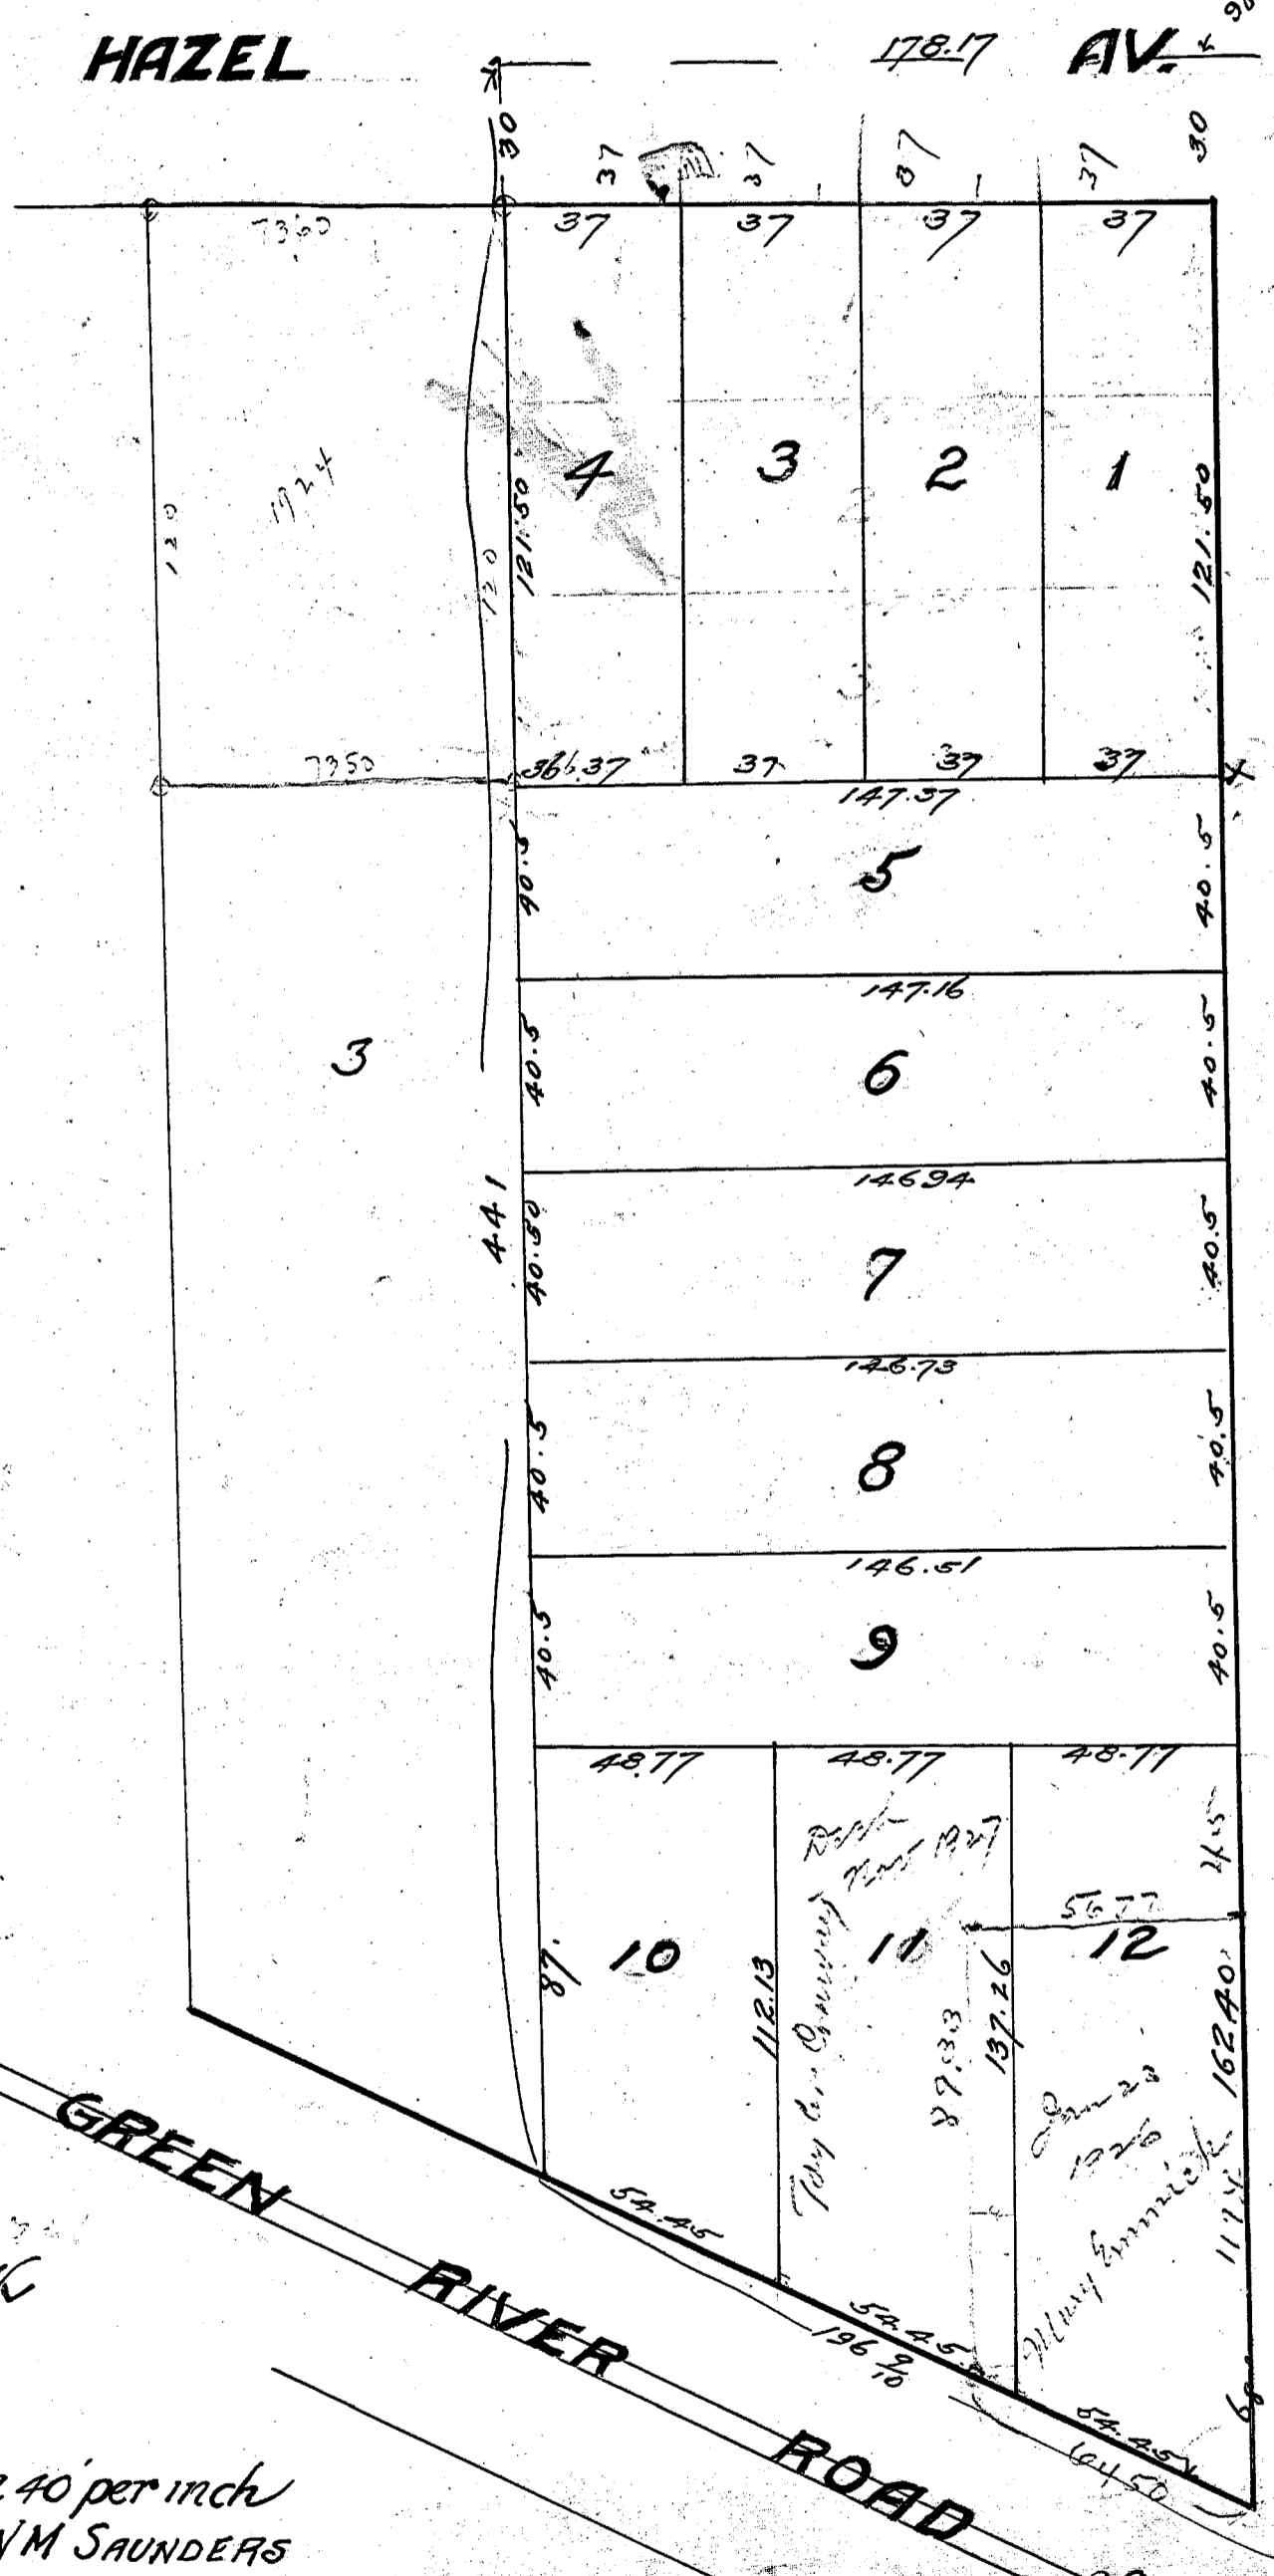 HAZEL 178.17 AV.
30 37 37 37 37 30
7360 37 37 37 37
4 3 2 1
1924
120 120 121.50 121.50
7350 37 37 37
147.37
40.5 5 40.5
147.16
3 40.5 6 40.5
146.94
441 40.50 7 40.5
146.73
40.5 8 40.5
146.51
40.5 9 40.5
48.77 48.77 48.77
1927
5677
87. 10 112.13 11 137.26 12 162.40
8733
Jan 23
1926
Mary Emmick
54.45
54.45
196 9/10
54.45
6450
GREEN RIVER ROAD
40' per inch
WM SAUNDERS